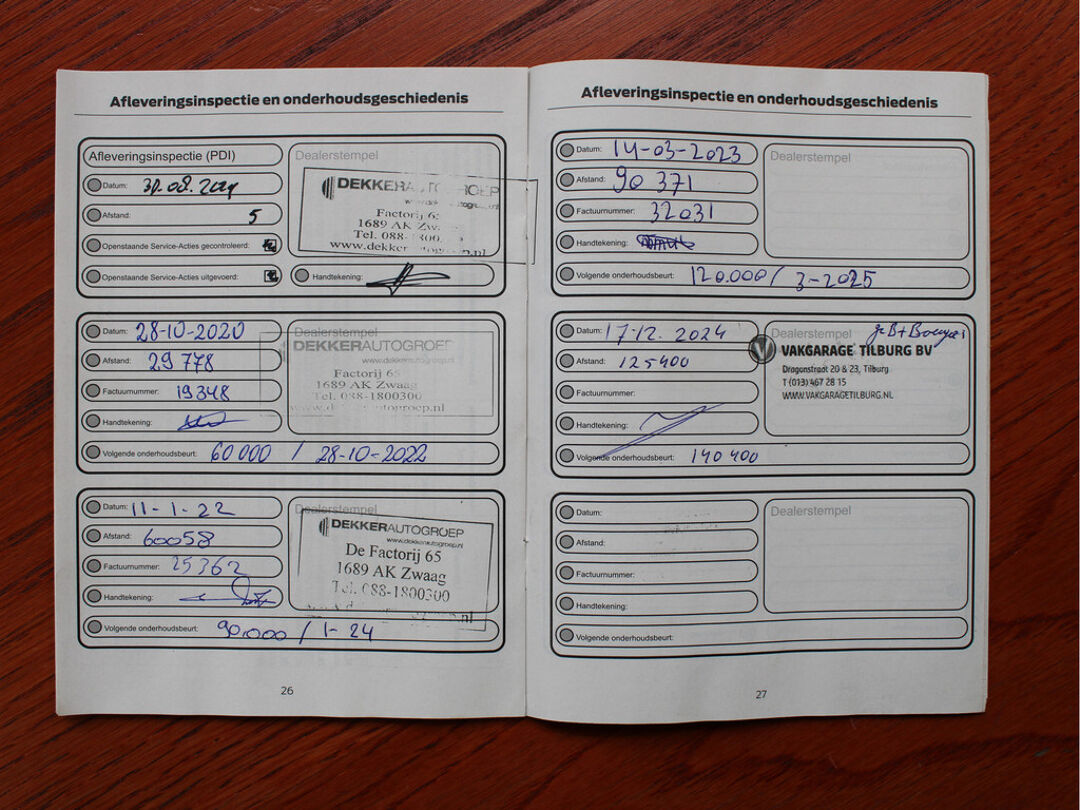 Afleveringsinspectie en onderhoudsgeschiedenis
Afleveringsinspectie (PDI)
Datum: 30.08.2019
Afstand: 5
Openstaande Service-Acties gecontroleerd:
Openstaande Service-Acties uitgevoerd:
Dealerstempel
DEKKERAUTOGROEP
Factorij 65
1689 AK
Tel. 088-
www.dekker
Handtekening:
Datum: 28-10-2020
Afstand: 29 778
Factuurnummer: 19348
Handtekening:
Volgende onderhoudsbeurt: 60 000 / 28-10-2022
Dealerstempel
DEKKERAUTOGROEP
www.dekkerautogroep.nl
Factorij 65
1689 AK Zwaag
Tel. 088-1800300
Datum: 11-1-22
Afstand: 60058
Factuurnummer: 25362
Handtekening:
Volgende onderhoudsbeurt: 90.000 / 1-24
Dealerstempel
DEKKERAUTOGROEP
www.dekkerautogroep.nl
De Factorij 65
1689 AK Zwaag
Tel. 088-1800300
26
Afleveringsinspectie en onderhoudsgeschiedenis
Datum: 14-03-2023
Afstand: 90 371
Factuurnummer: 32031
Handtekening:
Volgende onderhoudsbeurt: 120.000 / 3-2025
Dealerstempel
Datum: 17-12. 2024
Afstand: 125400
Factuurnummer:
Handtekening:
Volgende onderhoudsbeurt: 140 400
Dealerstempel
VAKGARAGE TILBURG BV
Dragonstraat 20 & 23, Tilburg
T (013) 467 28 15
WWW.VAKGARAGETILBURG.NL
Datum:
Afstand:
Factuurnummer:
Handtekening:
Volgende onderhoudsbeurt:
Dealerstempel
27